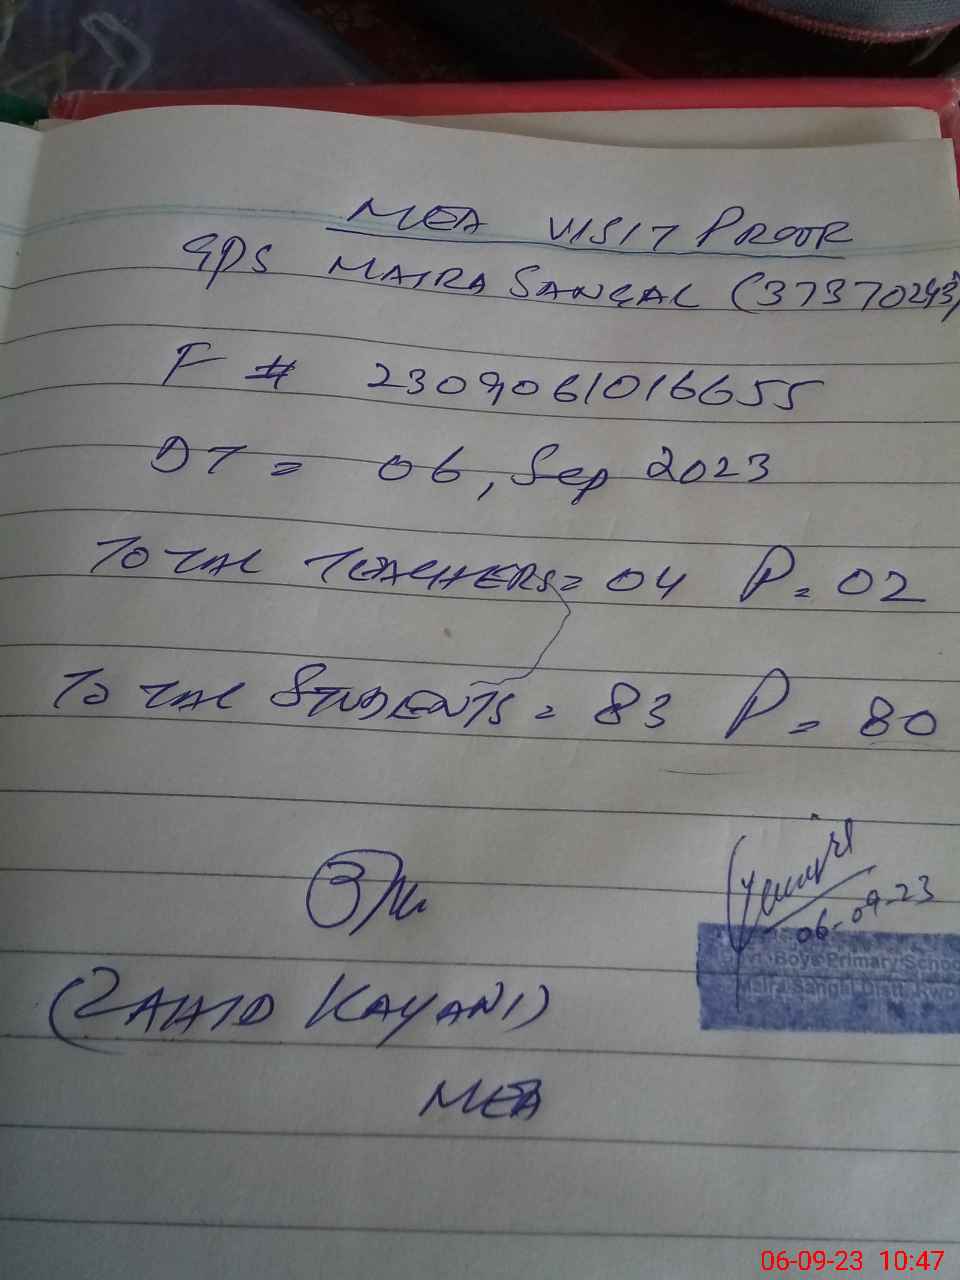 MEA VISIT PROOF
GPS MAIRA SANGAL (37370243)
F # 2309061016655
DT = 06, Sep 2023
TOTAL TEACHERS = 04 P = 02
TOTAL STUDENTS = 83 P = 80
06-09-23
Govt. Boys Primary School
Maira Sangal Distt. Rwp
(ZAHID KAYANI)
MEA
06-09-23 10:47